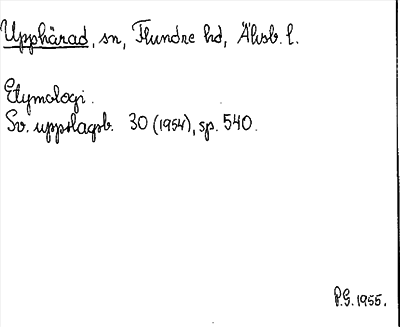 Upphärad, sn, Flundre hd, Älvsb. l.
Etymologi.
Sv. uppslagsb. 30 (1954), sp. 540.
P.G. 1955.